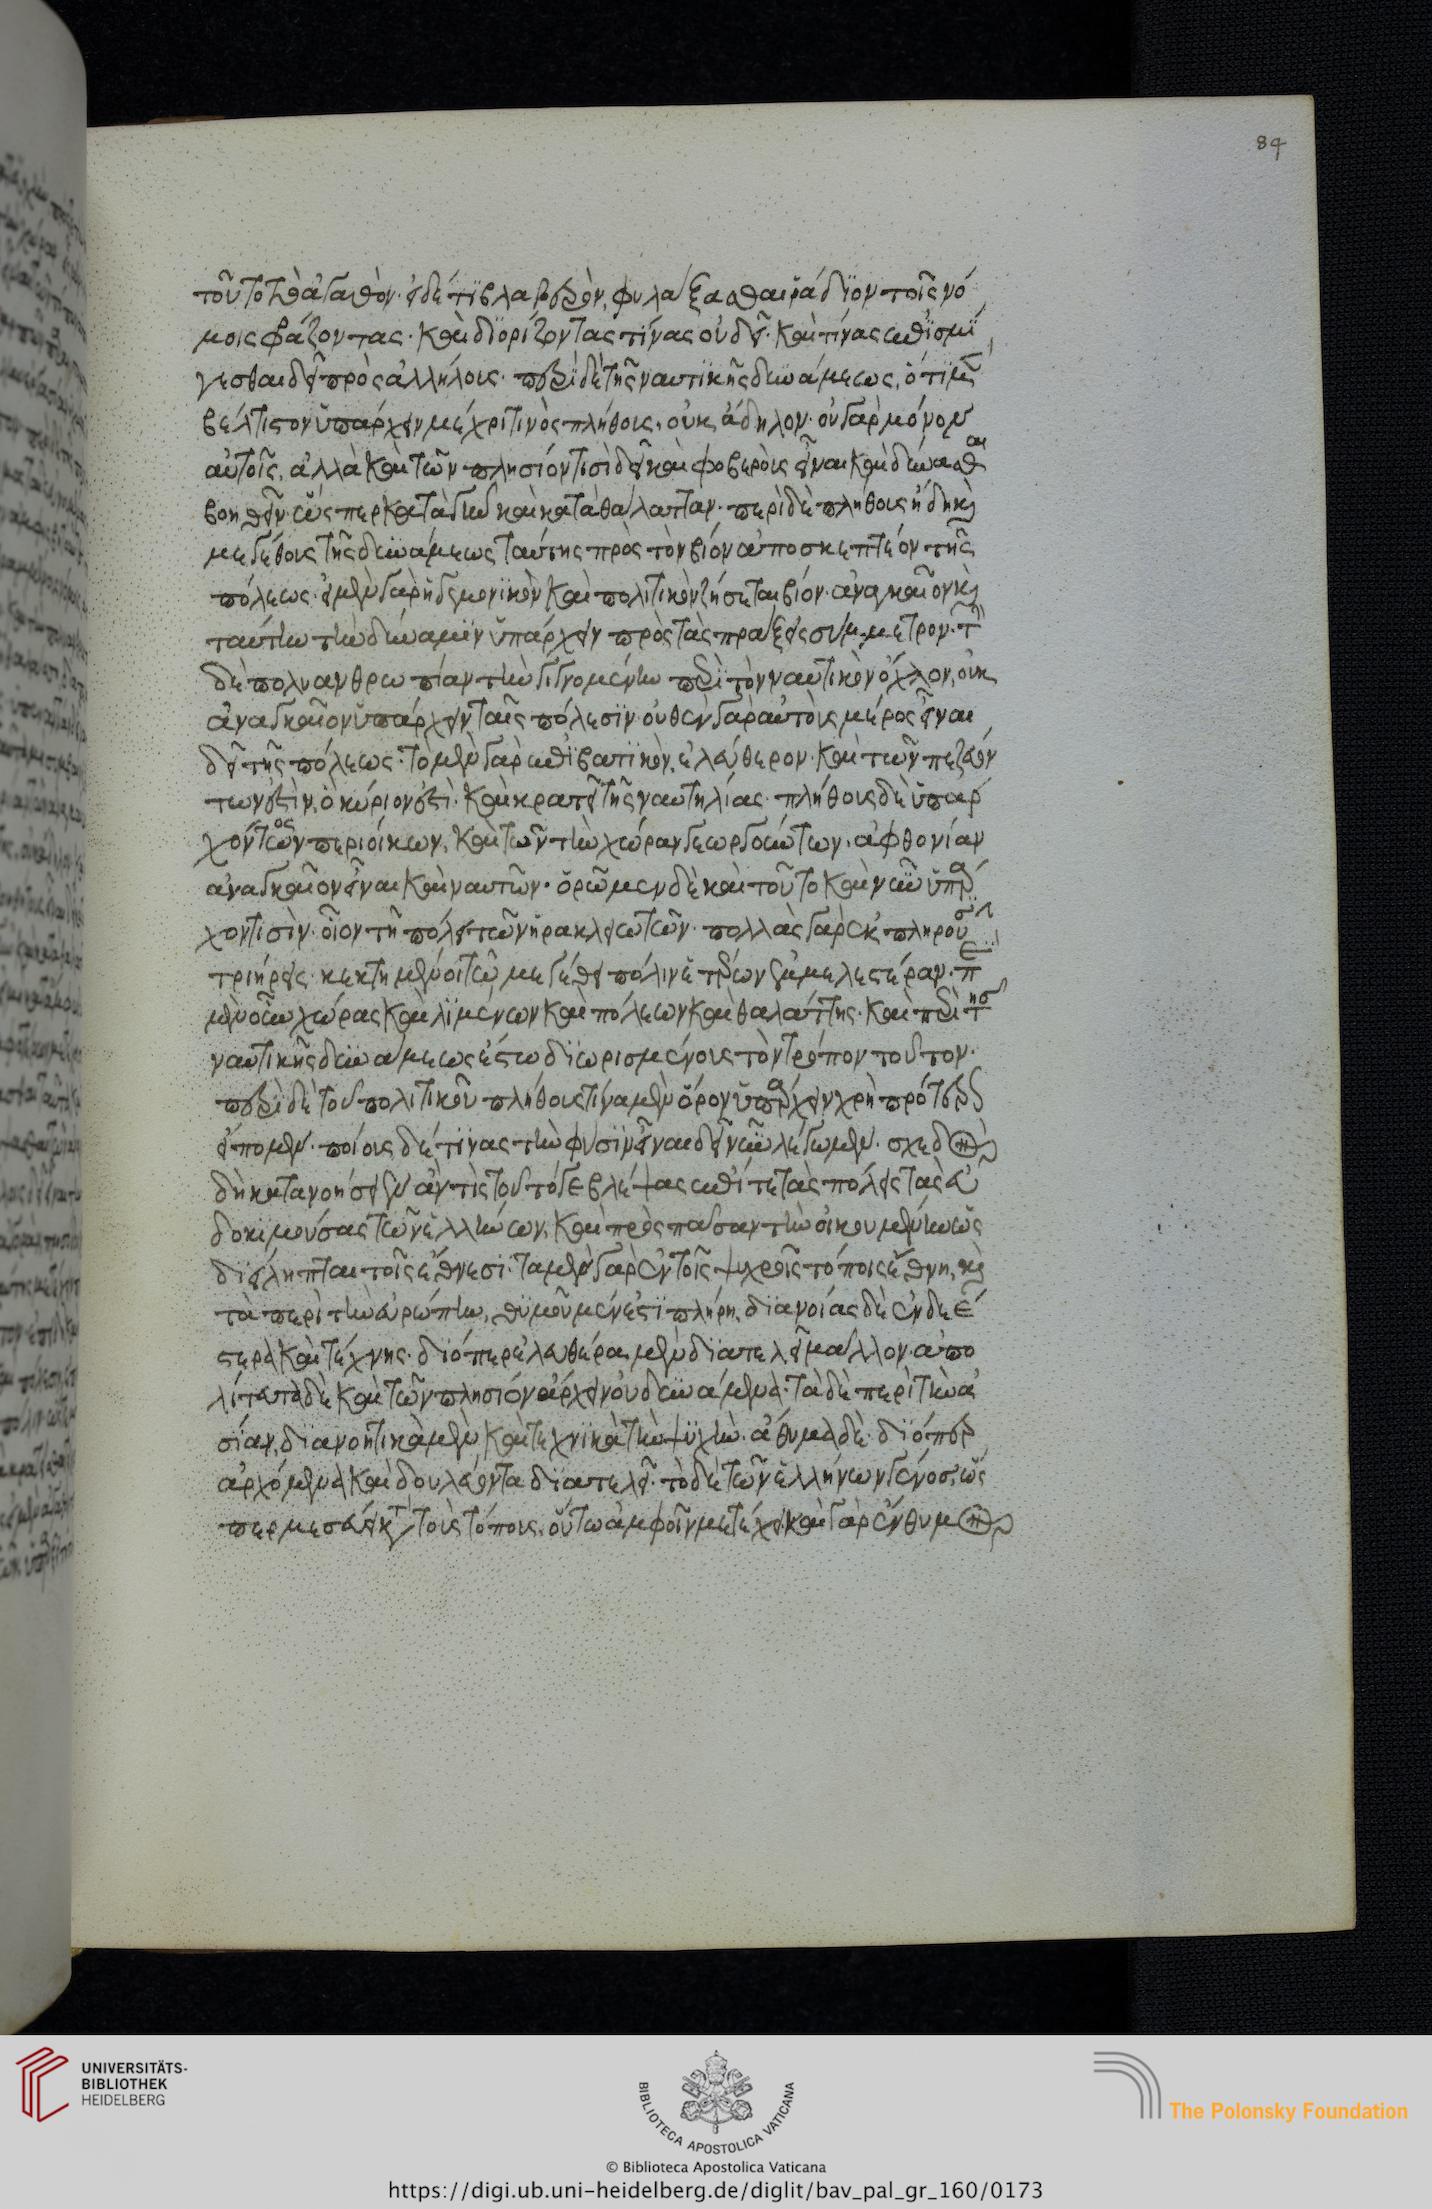 τοῦτο τὸ ἀγαθόν· εἰ δέ τι βλαβερὸν, φυλάξασθαι ῥάδιον τοῖς νό
μοις φράζοντας· καὶ διορίζοντας τίνας οὐ δεῖ· καὶ τίνας ἐπισμί
γεσθαι δεῖ πρὸς ἀλλήλους· περὶ δὲ τῆς ναυτικῆς δυνάμεως, ὅτι μὲν
βέλτιστον ὑπάρχειν μέχρι τινὸς πλήθους, οὐκ ἄδηλον· οὐ γὰρ μόνον
αὐτοῖς, ἀλλὰ καὶ τῶν πλησίον τισὶ δεῖ καὶ φοβεροὺς εἶναι καὶ δύνασθαι
βοηθεῖν· ὥσπερ κατὰ γῆν καὶ κατὰ θάλατταν· περὶ δὲ πλήθους ἤδη καὶ
μεγέθους τῆς δυνάμεως ταύτης πρὸς τὸν βίον ἀποσκεπτέον τῆς
πόλεως· εἰ μὲν γὰρ ἡγεμονικὸν καὶ πολιτικὸν ζήσεται βίον· ἀναγκαῖον καὶ
ταύτην τὴν δύναμιν ὑπάρχειν πρὸς τὰς πράξεις σύμμετρον· τὴν
δὲ πολυανθρωπίαν τὴν γιγνομένην περὶ τὸν ναυτικὸν ὄχλον, οὐκ
ἀναγκαῖον ὑπάρχειν ταῖς πόλεσιν· οὐθὲν γὰρ αὐτοὺς μέρος εἶναι
δεῖ τῆς πόλεως· τὸ μὲν γὰρ ἐπιβατικὸν, ἐλεύθερον· καὶ τῶν πεζευόν
των ἐστὶν, ὃ κύριον ἐστὶ· καὶ κρατεῖ τῆς ναυτηλίας· πλήθους δὲ ὑπάρ
χόντων περιοίκων, καὶ τῶν τὴν χώραν γεωργούντων, ἀφθονίαν
ἀναγκαῖον εἶναι καὶ ναυτῶν· ὁρῶμεν δὲ καὶ τοῦτο καὶ νῦν ὑπάρ
χον τισὶν· οἷον τῇ πόλει τῶν ἡρακλεωτῶν· πολλὰς γὰρ ἐκπληροῦσι
τριήρεις· κεκτημένοι τῷ μεγέθει πόλιν ἑτέρων ἐμμελεστέραν· περὶ
μὲν οὖν χώρας καὶ λιμένων καὶ πόλεων καὶ θαλάττης· καὶ περὶ τῆς
ναυτικῆς δυνάμεως ἔστω διωρισμένους τὸν τρόπον τοῦτον·
περὶ δὲ τοῦ πολιτικοῦ πλήθους τίνα μὲν ὅρον ὑπάρχειν χρὴ πρότερον
εἴπομεν· ποίους δέ τινας τὴν φύσιν εἶναι δεῖ νῦν λέγωμεν· σχεδὸν
δὴ κατανοήσειεν ἄν τις τοῦτό γε βλέψας ἐπί τε τὰς πόλεις τὰς εὐ
δοκιμούσας τῶν ἑλλήνων, καὶ πρὸς πᾶσαν τὴν οἰκουμένην ὡς
διείληπται τοῖς ἔθνεσι· τὰ μὲν γὰρ ἐν τοῖς ψυχροῖς τόποις ἔθνη, καὶ
τὰ περὶ τὴν εὐρώπην, θυμοῦ μέν ἐστι πλήρη, διανοίας δὲ ἐνδεέ
στερα καὶ τέχνης· διόπερ ἐλεύθερα μὲν διατελεῖ μᾶλλον· ἀπο
λίτευτα δὲ καὶ τῶν πλησίον ἄρχειν οὐ δυνάμενα· τὰ δὲ περὶ τὴν ἀ
σίαν, διανοητικὰ μὲν, καὶ τεχνικὰ τὴν ψυχὴν· ἄθυμα δὲ· διόπερ
ἀρχόμενα καὶ δουλεύοντα διατελεῖ· τὸ δὲ τῶν ἑλλήνων γένος, ὥς
περ μεσεύει κατὰ τοὺς τόπους, οὕτω ἀμφοῖν μετέχει καὶ γὰρ ἔνθυμον
84
UNIVERSITÄTS-
BIBLIOTHEK
HEIDELBERG
BIBLIOTECA APOSTOLICA VATICANA
© Biblioteca Apostolica Vaticana
The Polonsky Foundation
https://digi.ub.uni-heidelberg.de/diglit/bav_pal_gr_160/0173